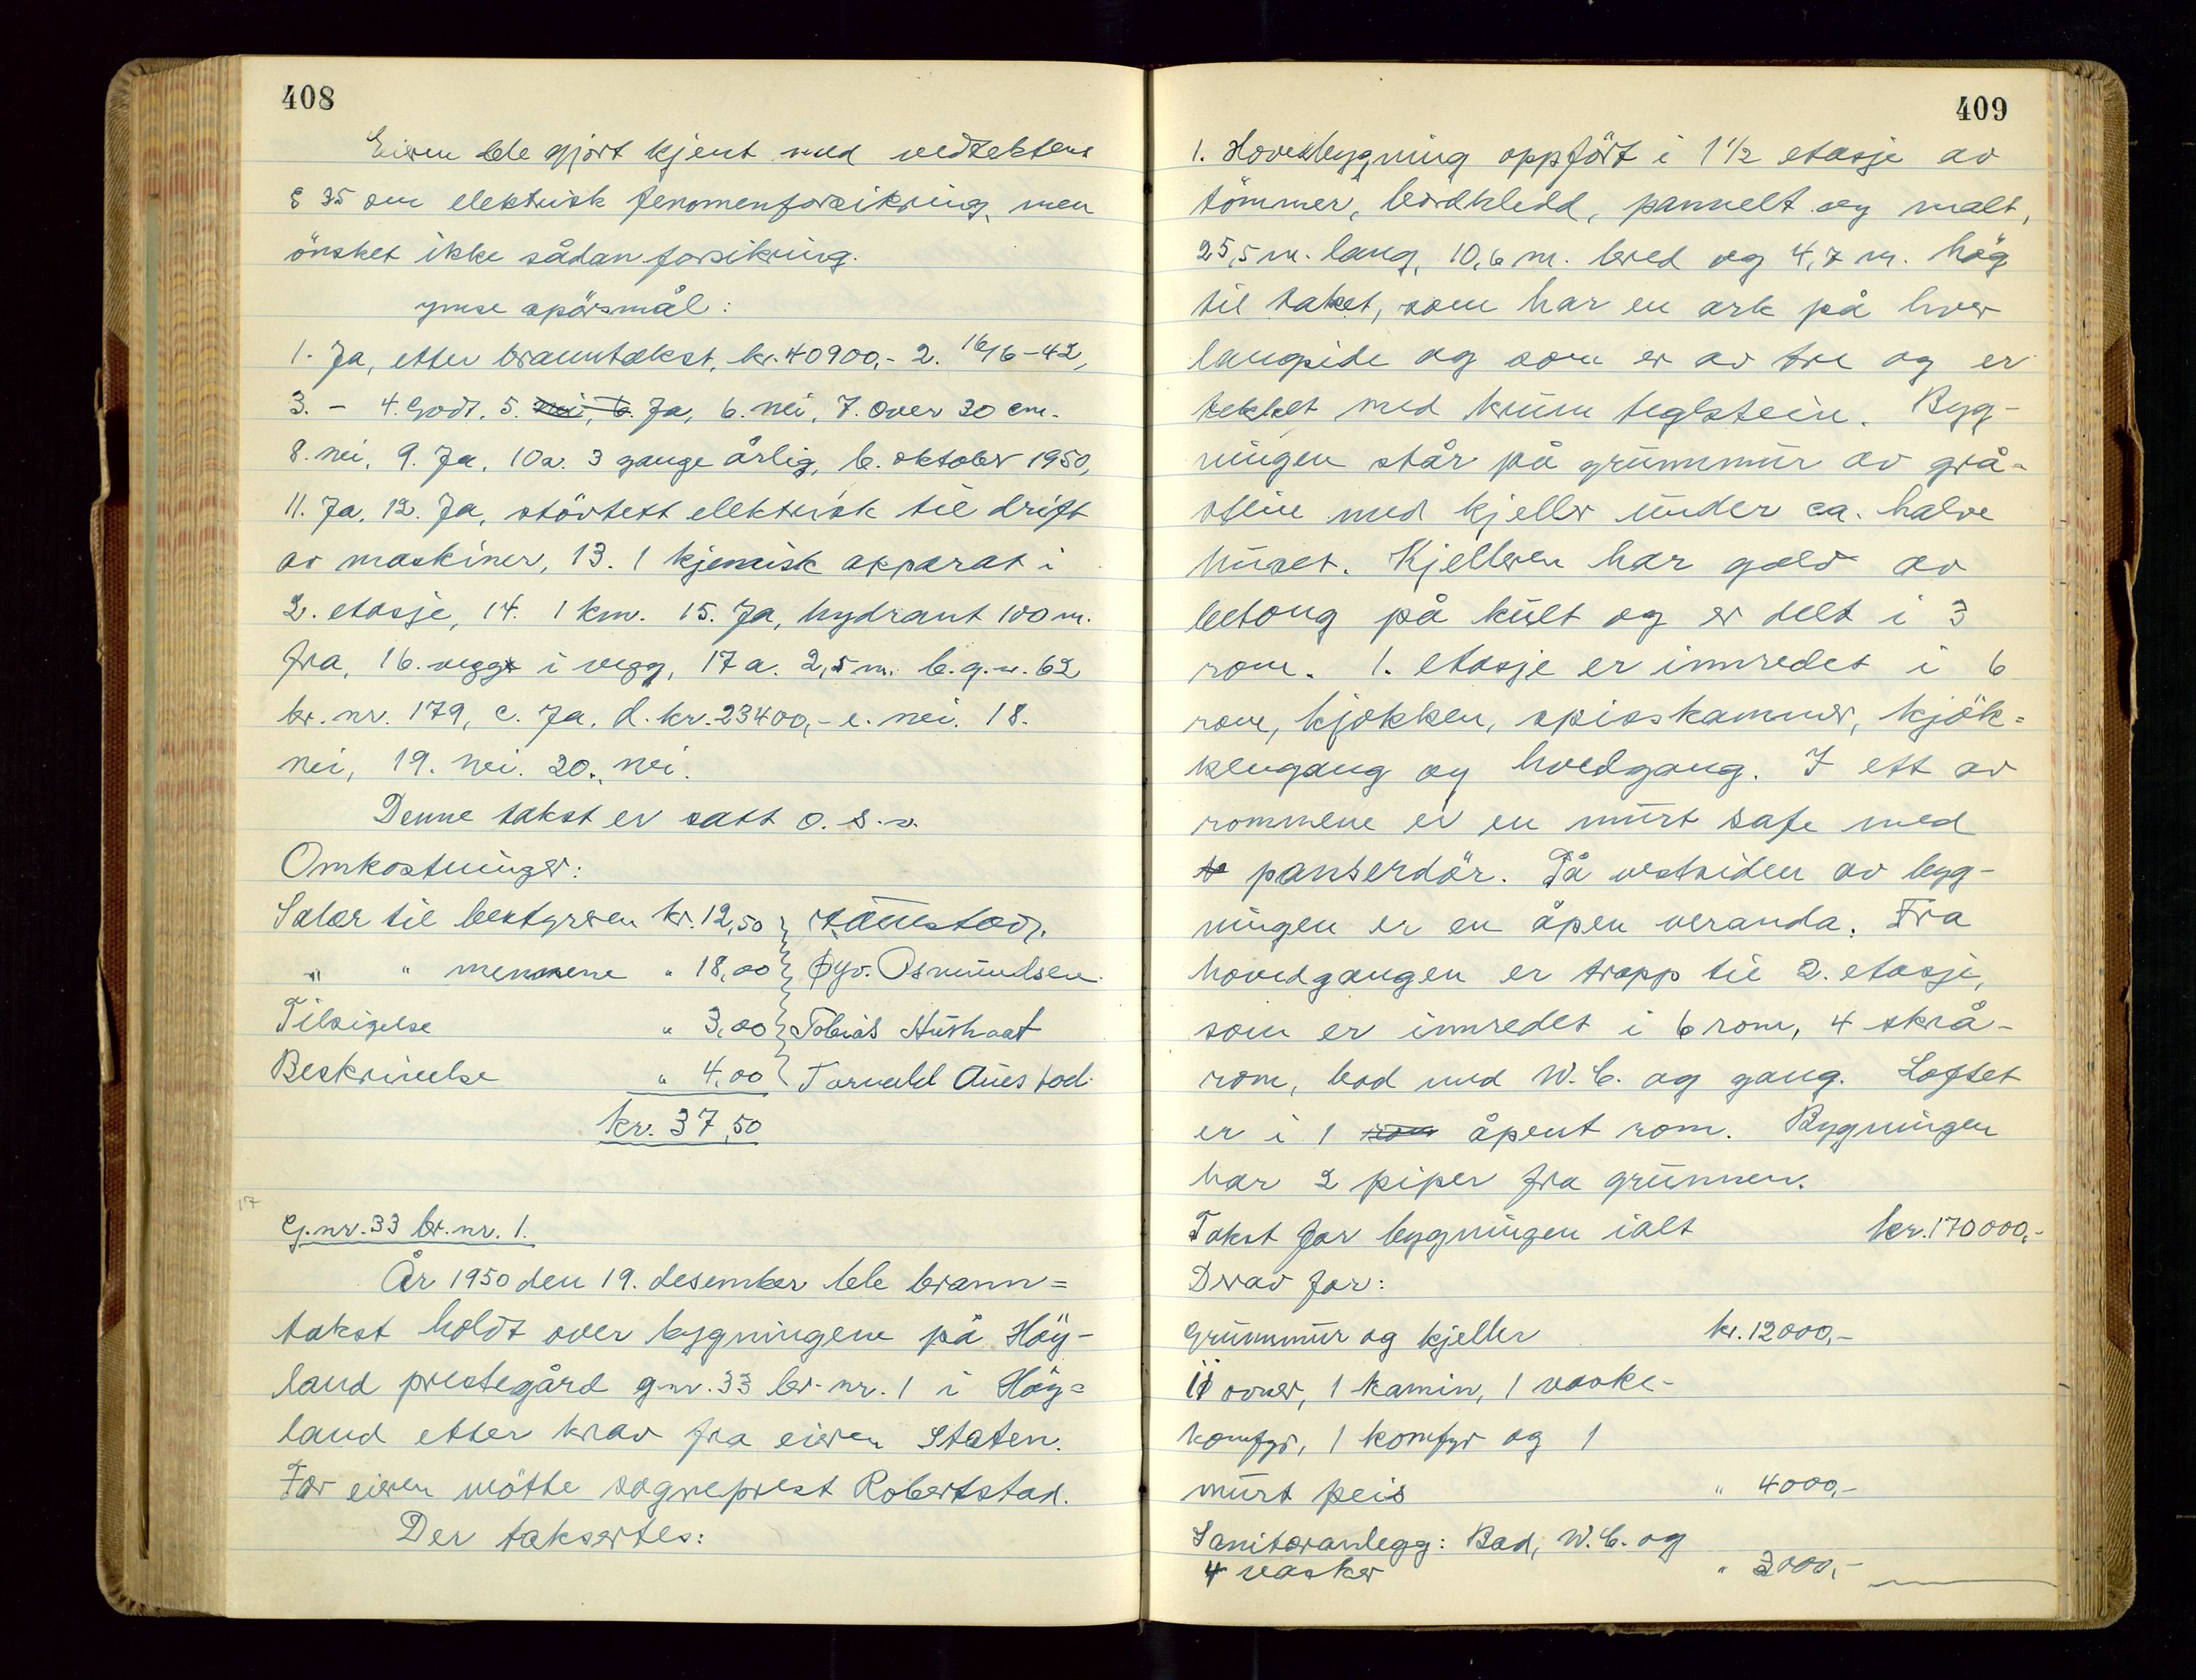 408
Eieren ble gjort kjent med vedtektens
§ 35 om elektrisk fenomenforsikring, men
önsket ikke sådan forsikring.
ymse spörsmål:
1. Ja, etter branntakst, kr. 40900,- 2. 16/6-42,
3. - 4. Godt. 5. nei, 6. Ja, 6. nei, 7. Over 30 cm.
8. nei, 9. Ja, 10a. 3 gange årlig, b. oktober 1950,
11. Ja, 12. Ja, störtett elektrisk til drift
av maskiner, 13. 1 kjemisk apparat i
2. etasje, 14. 1 km. 15. Ja, hydrant 100 m.
fra, 16. vegg i vegg, 17 a. 2,5 m. b. g.nr. 62
br. nr. 179, c. Ja. d. kr. 23400,- e. nei. 18.
nei, 19. nei. 20. nei.
Denne takst er satt o. s. v.
Omkostninger:
Salær til bestyreren kr. 12,50
" " mennene " 18,00 Øyv. Osmundsen.
Tilsigelse " 3,00 Tobias
Beskrivelse " 4,00 Torvald Auestad.
kr. 37,50
17
G.nr. 33 br. nr. 1.
År 1950 den 19. desember ble brann=
takst holdt over bygningene på Höy-
land prestegård g.nr. 33 br. nr. 1 i Höy=
land etter krav fra eieren Staten.
For eieren mötte sogneprest Robertstad.
Der taksertes:
409
1. Hovedbygning oppfört i 1 1/2 etasje av
tömmer, bordkledd, pannelt og malt,
25,5 m. lang, 10,6 m. bred og 4,7 m. hög
til taket, som har en ark på hver
langside og som er av tre og er
tekket med krum teglstein. Byg-
ningen står på grunnmur av grå-
stein med kjeller under ca. halve
huset. Kjelleren har golv av
betong på kult og er delt i 3
rom. 1. etasje er innredet i 6
rom, kjökken, spisskammer, kjök=
kengang og hvedgang. I ett av
rommene er en murt safe med
panserdör. På vestsiden av byg-
ningen er en åpen veranda. Fra
hovedgangen er trapp til 2. etasje,
som er innredet i 6 rom, 4 skrå-
rom, bad med W.C. og gang. Loftet
er i 1 rom åpent rom. Bygningen
har 2 piper fra grunnen.
Takst for bygningen ialt kr. 170000,-
Derav for:
Grunnmur og kjeller kr. 12000,-
11 ovner, 1 kamin, 1 vaske-
komfyr, 1 komfyr og 1
murt peis " 4000,-
Sanitæranlegg: Bad, W.C. og
4 vasker " 3000,-